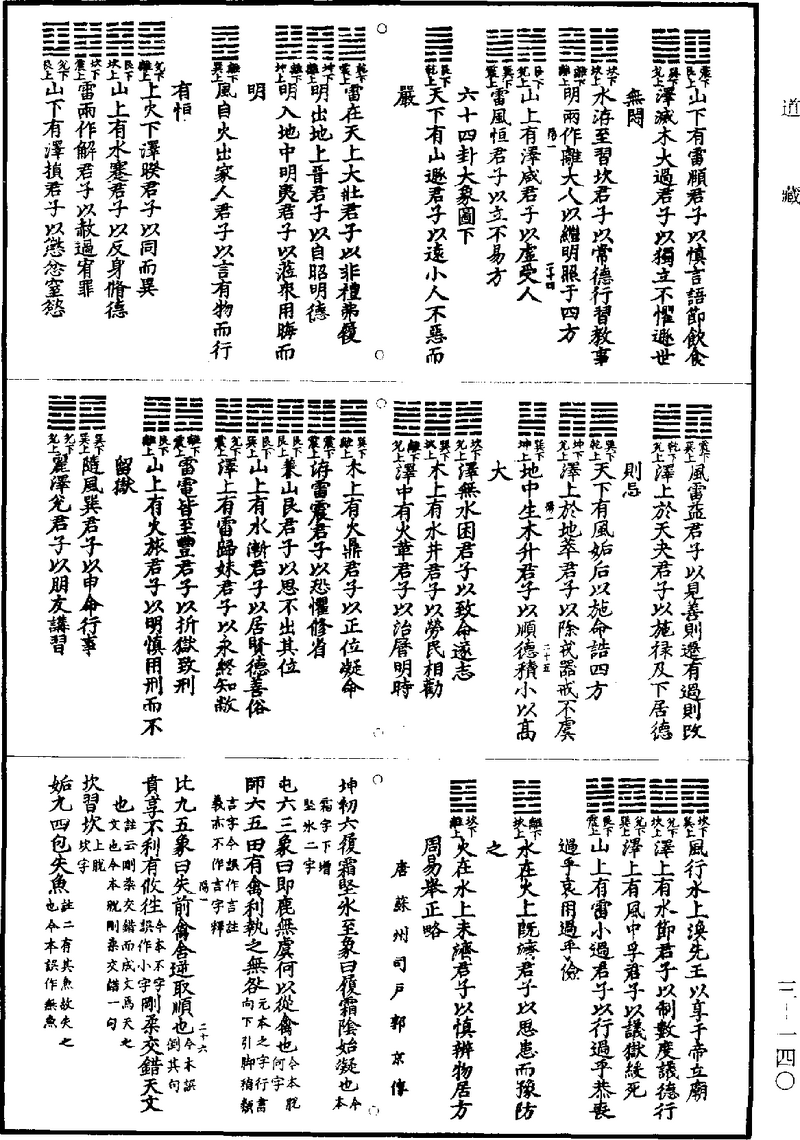 道藏
震下艮上山下有雷頤君子以慎言語節飲食
巽下兌上澤滅木大過君子以獨立不懼遯世
無悶
坎下坎上水洊至習坎君子以常德行習教事
離下離上明兩作離大人以繼明照于四方
陽一 二十四
艮下兌上山上有澤咸君子以虛受人
巽下震上雷風恒君子以立不易方
六十四卦大象圖下
艮下乾上天下有山遯君子以遠小人不惡而
嚴
乾下震上雷在天上大壯君子以非禮弗履
坤下離上明出地上晉君子以自昭明德
離下坤上明入地中明夷君子以蒞眾用晦而
明
離下巽上風自火出家人君子以言有物而行
有恒
兌下離上上火下澤睽君子以同而異
艮下坎上山上有水蹇君子以反身脩德
坎下震上雷雨作解君子以赦過宥罪
兌下艮上山下有澤損君子以懲忿窒慾
震下巽上風雷益君子以見善則遷有過則改
乾下兌上澤上於天夬君子以施祿及下居德
則忌
巽下乾上天下有風姤后以施命誥四方
坤下兌上澤上於地萃君子以除戎器戒不虞
陽一 二十五
巽下坤上地中生木升君子以順德積小以高
大
坎下兌上澤無水困君子以致命遂志
巽下坎上木上有水井君子以勞民相勸
離下兌上澤中有火革君子以治曆明時
巽下離上木上有火鼎君子以正位凝命
震下震上洊雷震君子以恐懼修省
艮下艮上兼山艮君子以思不出其位
艮下巽上山上有水漸君子以居賢德善俗
兌下震上澤上有雷歸妹君子以永終知敝
離下震上雷電皆至豐君子以折獄致刑
艮下離上山上有火旅君子以明慎用刑而不
留獄
巽下巽上隨風巽君子以申命行事
兌下兌上麗澤兌君子以朋友講習
坎下巽上風行水上渙先王以享于帝立廟
兌下坎上澤上有水節君子以制數度議德行
兌下巽上澤上有風中孚君子以議獄緩死
艮下震上山上有雷小過君子以行過乎恭喪
過乎哀用過乎儉
離下坎上水在火上既濟君子以思患而豫防
之
坎下離上火在水上未濟君子以慎辨物居方
周易舉正略
唐蘇州司戶郭京傳
坤初六履霜堅氷至象曰履霜陰始凝也今本
霜字下增堅氷二字
屯六三象曰即鹿無虞何以從禽也今本脫何字
師六五田有禽利執之無咎元本之字行書向下引脚稍類
言字今誤作言註義亦不作言字釋
陽一 二十六
比九五象曰失前禽舍逆取順也今本誤倒其句
賁亨不利有攸往今本不字誤作小字剛柔交錯天文
也註云剛柔交錯而成文焉天之文也今本脫剛柔交錯一句
坎習坎上脫坎字
姤九四包失魚註二有其魚故失之也今本誤作無魚
三－一四〇